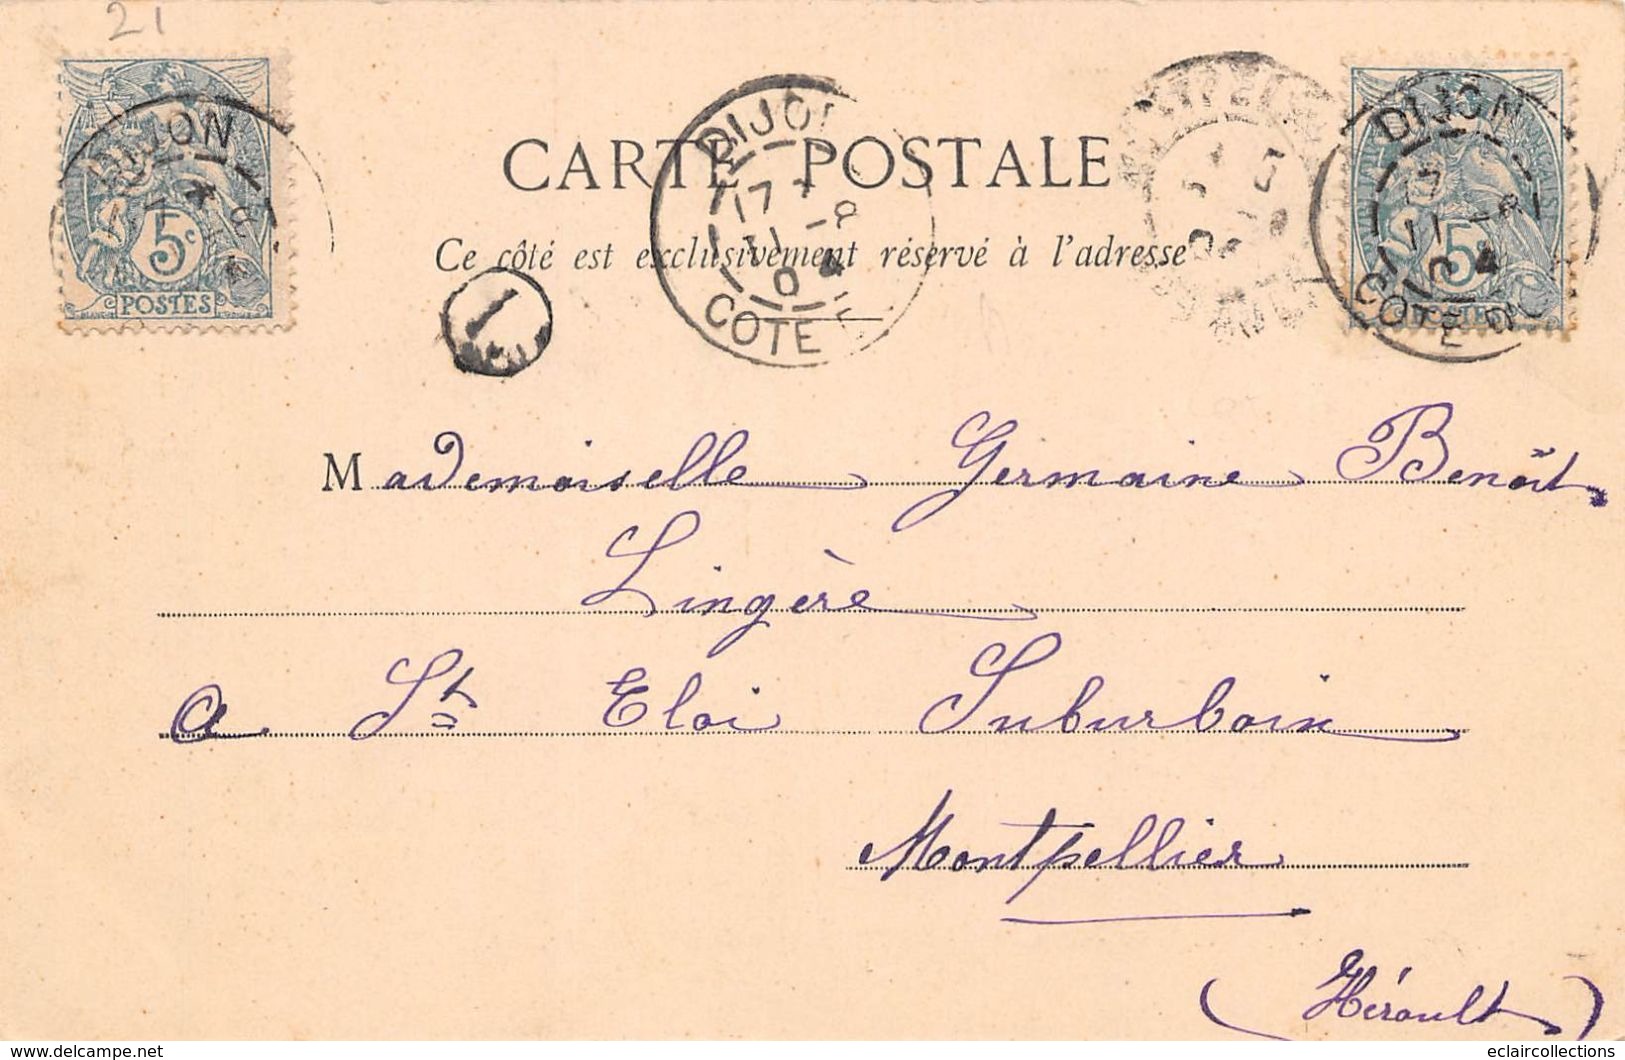 21
DIJON
5c
POSTES
CARTE POSTALE
DIJON
17
11 -8
04
COTE
DIJON
17
11 -8
04
COTE D'OR
5c
Ce côté est exclusivement réservé à l'adresse
1
Mademoiselle Germaine Benoît
Lingère
a St Eloi Suburbain
Montpellier
(Hérault)
delcampe.net
eclaircollections